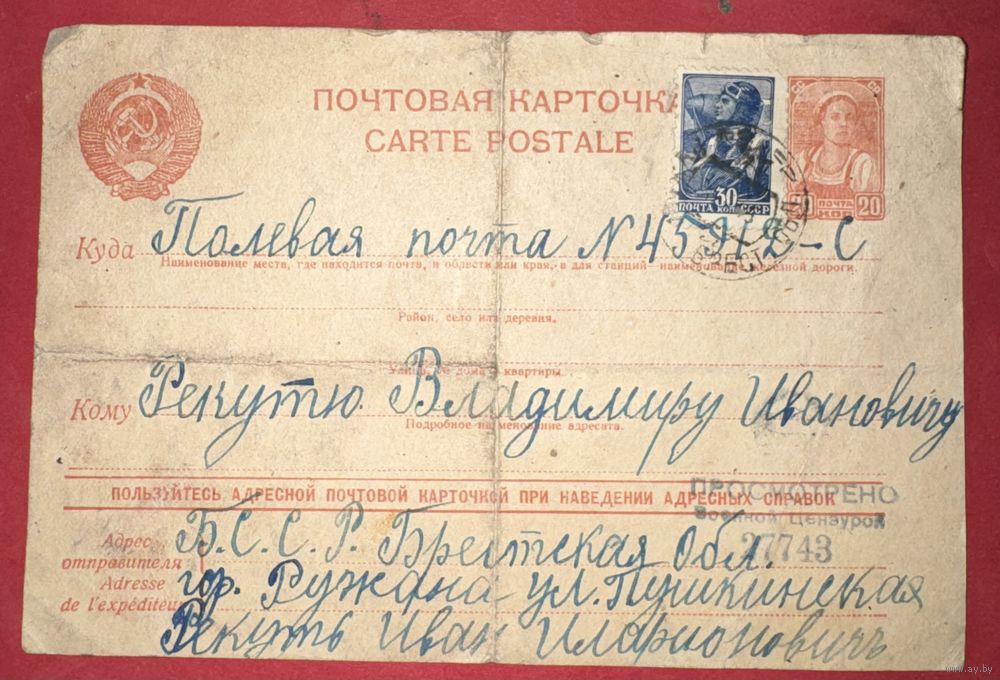 ПОЧТОВАЯ КАРТОЧКА
CARTE POSTALE
30
ПОЧТА КОП СССР
ПОЧТА
КОП 20
Куда Полевая почта N 45912-С
Наименование места, где находится почта, и области или края, а для станций—наименование железной дороги.
Район, село или деревня.
Улица, № дома, квартиры.
Кому Рекутю Владимиру Ивановичу
Подробное наименование адресата.
ПОЛЬЗУЙТЕСЬ АДРЕСНОЙ ПОЧТОВОЙ КАРТОЧКОЙ ПРИ НАВЕДЕНИИ АДРЕСНЫХ СПРАВОК
ПРОСМОТРЕНО
Военной Цензурой
27743
Адрес отправителя
Adresse de l'expéditeur
Б.С.С.Р. Брестская Обл.
гор. Ружана ул. Пушкинская
Рекуть Иван Иларионовичъ
www.ay.by